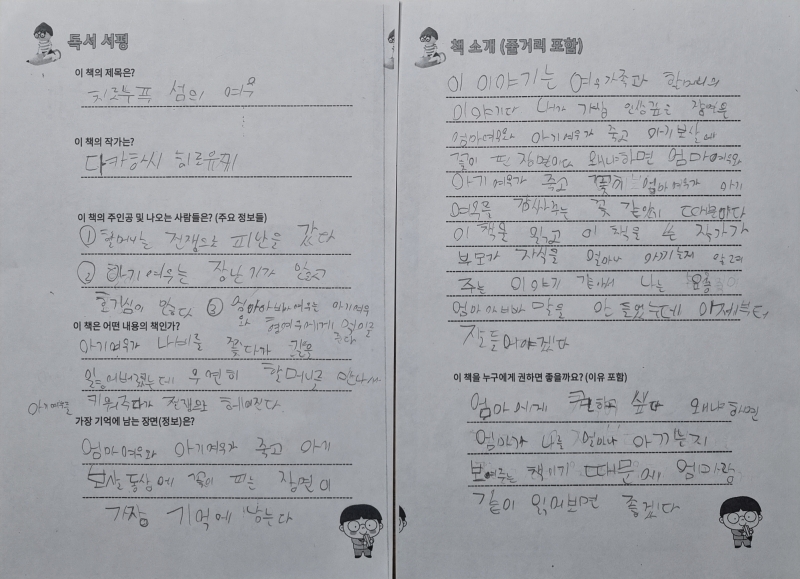 독서 서평
이 책의 제목은?
치로누프 섬의 여우
이 책의 작가는?
다카하시 히로유키
이 책의 주인공 및 나오는 사람들은? (주요 정보들)
① 할머니는 전쟁으로 피난을 갔다
② 아기여우는 장난기가 많고
호기심이 많다 ③ 엄마아빠여우는 아기여우
와 형여우에게 먹이를
준다
이 책은 어떤 내용의 책인가?
아기여우가 나비를 쫓다가 길을
잃어버렸는데 우연히 할머니로 만나서
아기여우를 키워주다가 전쟁으로 헤어진다
가장 기억에 남는 장면(정보)은?
엄마여우와 아기여우가 죽고 아기
보살동상에 꽃이 피는 장면이
가장 기억에 남는다
책 소개 (줄거리 포함)
이 이야기는 여우가족과 할머니의
이야기다 내가 가장 인상깊은 장면은
엄마여우와 아기여우가 죽고 아기보살에
꽃이 핀 장면이다 왜냐하면 엄마여우와
아기여우가 죽고 꽃이 엄마여우가 아기
여우를 감싸주는 꽃 같았기 때문이다
이 책을 읽고 이 책을 쓴 작가가
부모가 자식을 얼마나 아끼는지 알려
주는 이야기 같아 나는 요즘
엄마 아빠 말을 안 들었는데 이제부터
잘 들어야겠다
이 책을 누구에게 권하면 좋을까요? (이유 포함)
엄마에게 권하고 싶다 왜냐하면
엄마가 나를 얼마나 아끼는지
보여주는 책이기 때문에 엄마랑
같이 읽어보면 좋겠다